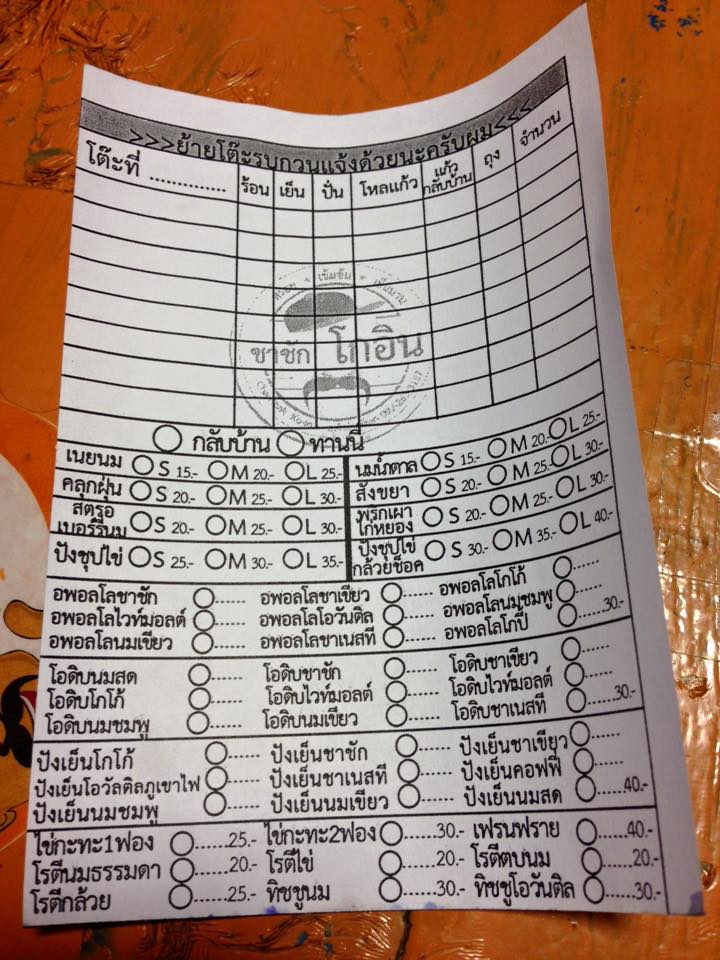 >>>ย้ายโต๊ะรบกวนแจ้งด้วยนะครับผม<<<
โต๊ะที่ .............. ร้อน เย็น ปั่น โหลแก้ว แก้วกลับบ้าน ถุง จำนวน
เข้มข้น
ชาชัก โกอิน
กลับบ้าน ทานนี่
เนยนม S 15.- M 20.- L 25.- นมน้ำตาล S 15.- M 20.- L 25.-
คลุกฝุ่น S 20.- M 25.- L 30.- สังขยา S 20.- M 25.- L 30.-
สตรอเบอร์รี่นม S 20.- M 25.- L 30.- พริกเผาไก่หยอง S 20.- M 25.- L 30.-
ปังชุปไข่ S 25.- M 30.- L 35.- ปังชุปไข่กล้วยช็อค S 30.- M 35.- L 40.-
อพอลโลชาชัก ...... อพอลโลชาเขียว ...... อพอลโลโกโก้ ......
อพอลโลไวท์มอลต์ ...... อพอลโลโอวันติล ...... อพอลโลนมชมพู ......
อพอลโลนมเขียว ...... อพอลโลชาเนสที ...... อพอลโลโกปี๊ ......30.-
โอดิบนมสด ...... โอดิบชาชัก ...... โอดิบชาเขียว ......
โอดิบโกโก้ ...... โอดิบไวท์มอลต์ ...... โอดิบไวท์มอลต์ ......
โอดิบนมชมพู ...... โอดิบนมเขียว ...... โอดิบชาเนสที ......30.-
ปังเย็นโกโก้ ...... ปังเย็นชาชัก ...... ปังเย็นชาเขียว ......
ปังเย็นโอวัลติลภูเขาไฟ ...... ปังเย็นชาเนสที ...... ปังเย็นคอฟฟี่ ......
ปังเย็นนมชมพู ...... ปังเย็นนมเขียว ...... ปังเย็นนมสด ......40.-
ไข่กะทะ1ฟอง ......25.- ไข่กะทะ2ฟอง ......30.- เฟรนฟราย ......40.-
โรตีนมธรรมดา ......20.- โรตีไข่ ......20.- โรตีตบนม ......20.-
โรตีกล้วย ......25.- ทิชชูนม ......30.- ทิชชูโอวันติล ......30.-